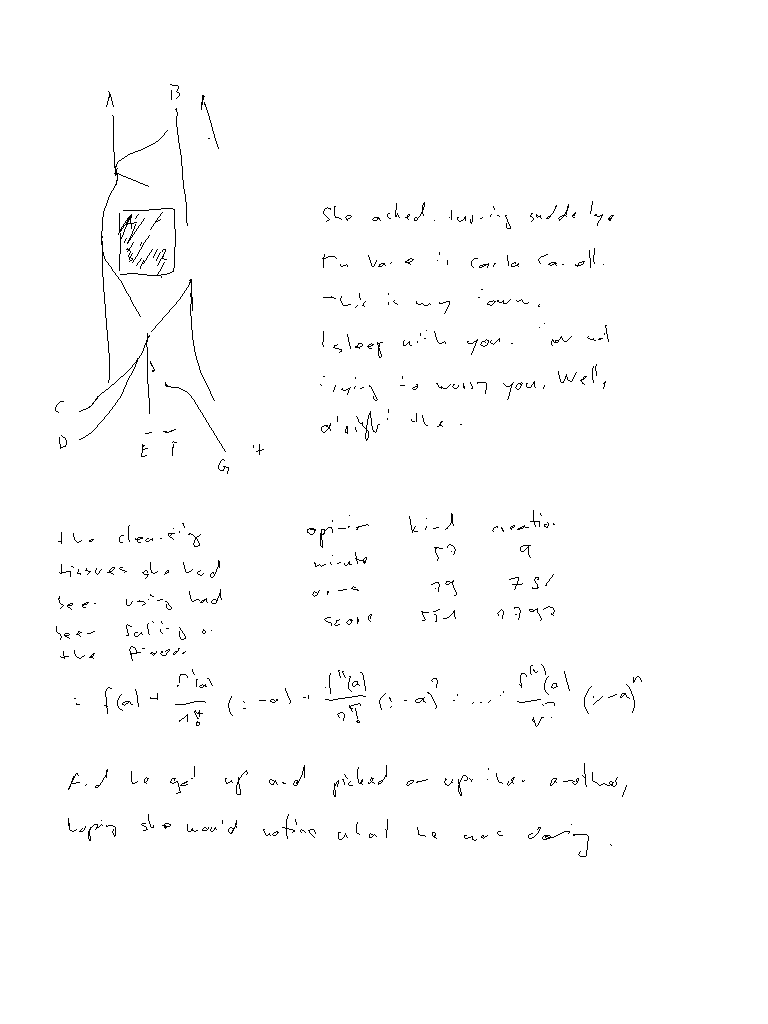 A B A
She asked, turning suddenly
name is Carla
This is my town.
I sleep with you. I'm not
trying to worry you. Well,
alright the.
C
D
E F
G
the cleansing
tissues she had
been using had
been falling
the
opinion kind creation
minute 57 9
79 731
score 551 1797
= f(a) + f'(a)/1! (x-a) + f''(a)/2! (x-a)² + .... f⁽ⁿ⁾(a)/n! (x-a)ⁿ
And he got up and picked up another,
hoping she would notice what he was doing.